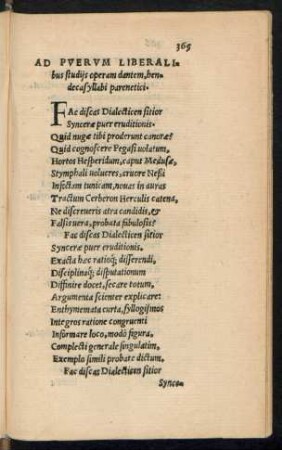 365
AD PVERVM LIBERALI-
bus studijs operam dantem, hen-
decasyllabi parenetici.
FAc discas Dialecticen sitior
Synceræ puer eruditionis.
Quid nugæ tibi proderunt canoræ?
Quid cognoscere Pegasi uolatum,
Hortos Hesperidum, caput Medusæ,
Stymphali uolucres, cruore Nessi
Infectam tunicam, nouas in auras
Tractum Cerberon Herculis catena,
Ne discreueris atra candidis, &
Falsis uera, probata fabulosis?
Fac discas Dialecticen sitior
Synceræ puer eruditionis.
Exacta hæc ratioq́; disserendi,
Disciplinaq́; disputationum
Diffinire docet, secare totum,
Argumenta scienter explicare:
Enthymemata curta, syllogismos
Integros ratione congruenti
Informare loco, modo, figura,
Complecti generale singulatim,
Exemplo simili probare dictum.
Fac discas Dialecticen sitior
Synce-